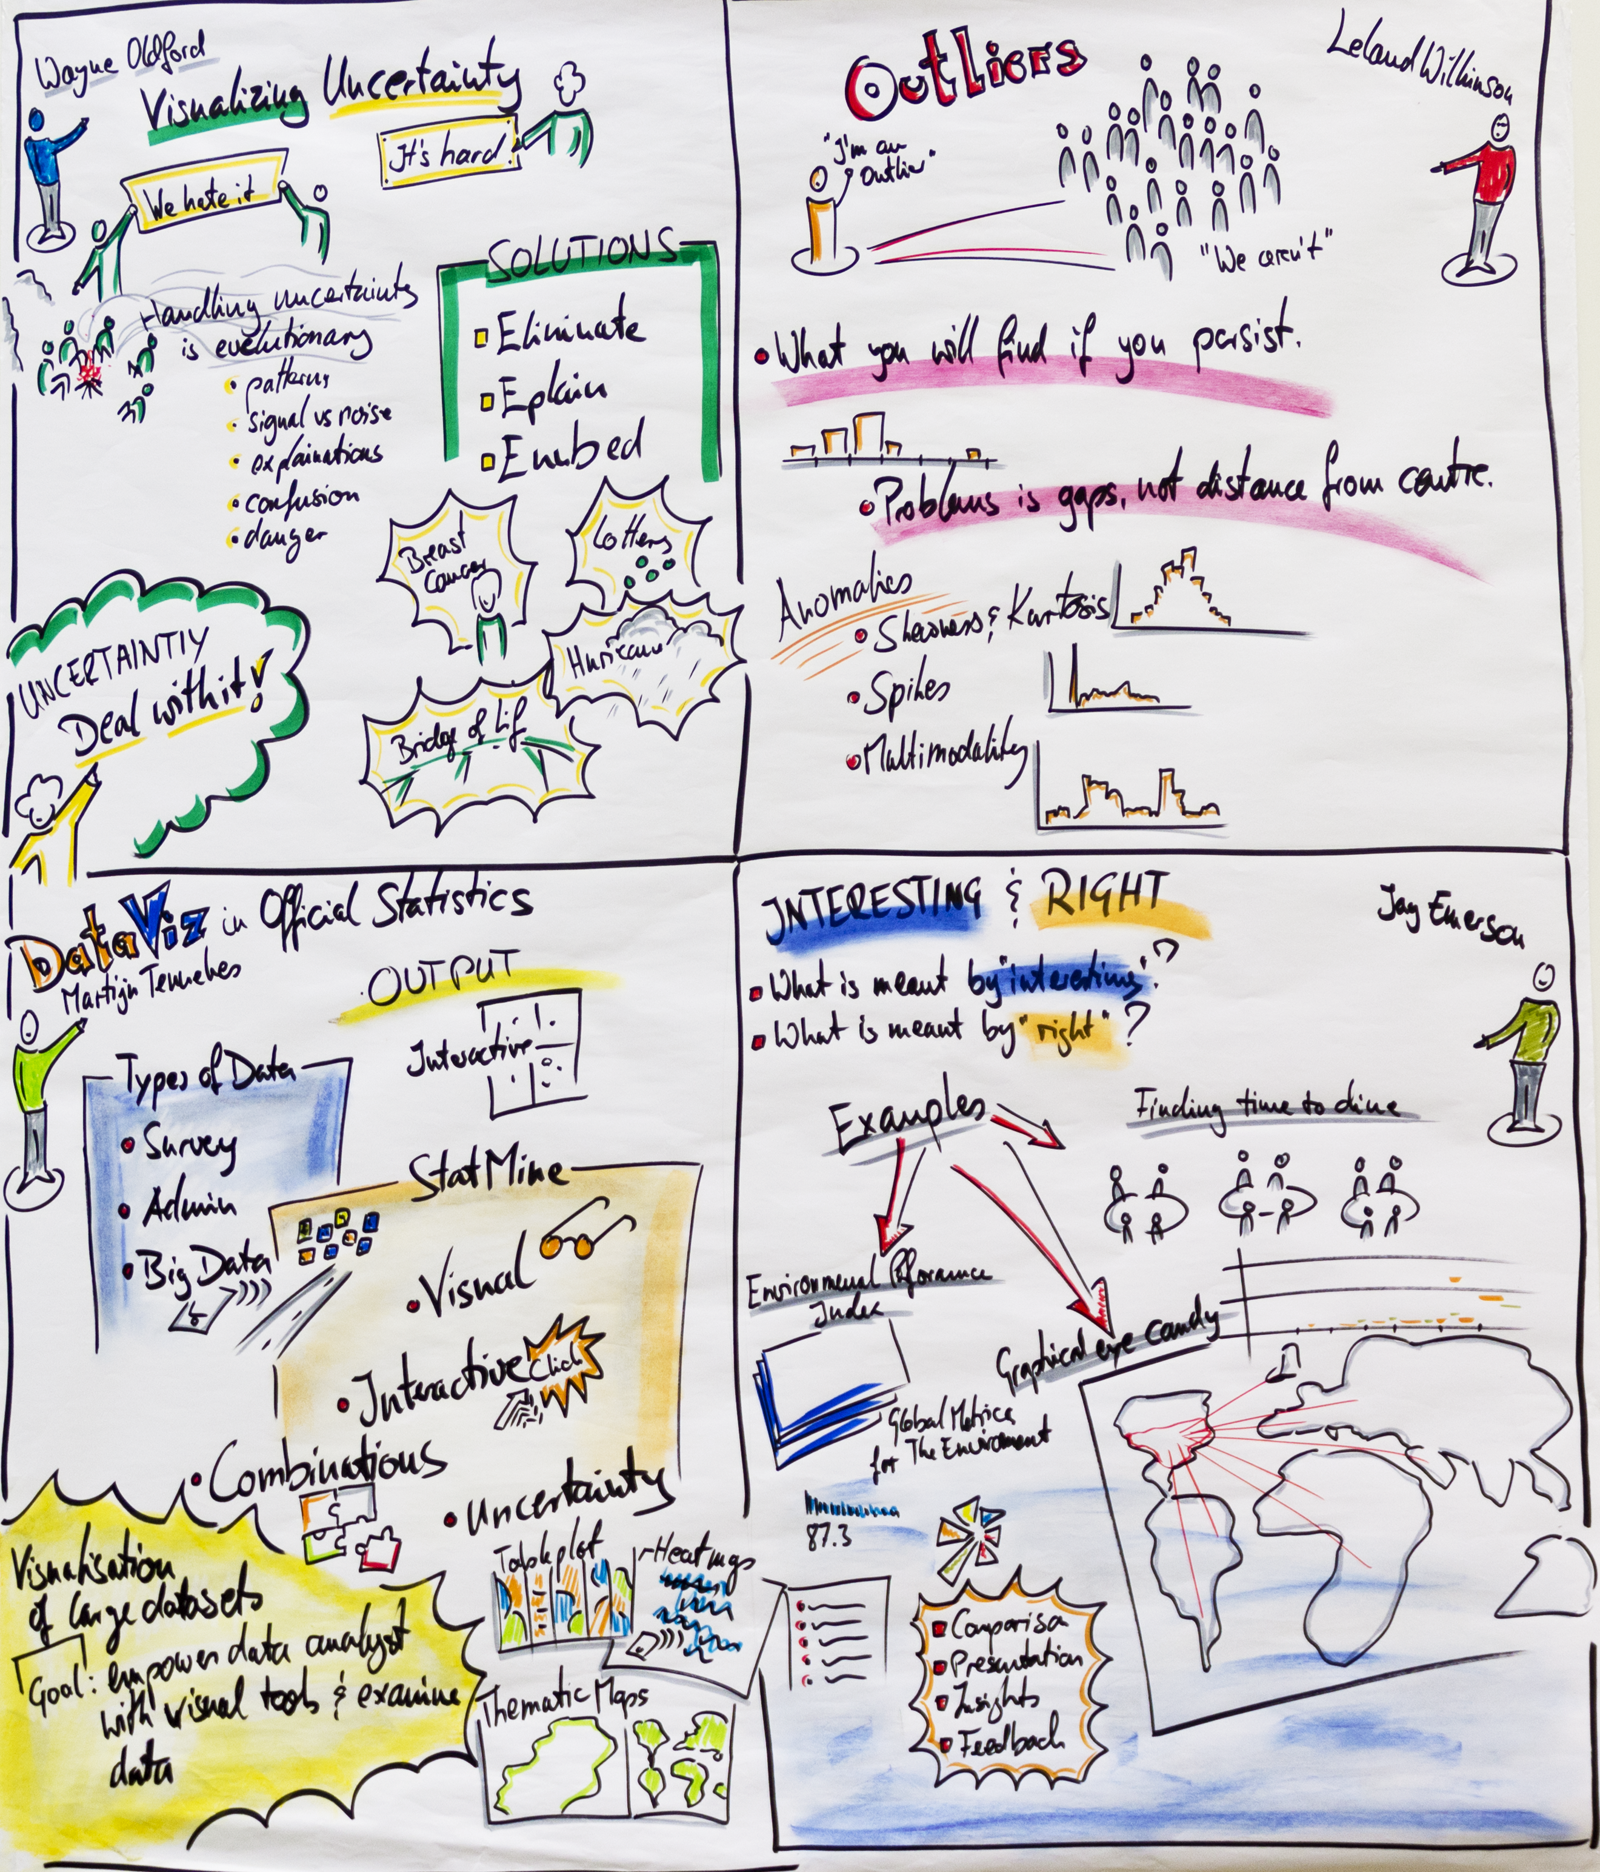 Wayne Oldford
Visualizing Uncertainty
It's hard!
We hate it
Handling uncertainty
is evolutionary
patterns
signal vs noise
explainations
confusion
danger
SOLUTIONS
Eliminate
Eplain
Embed
Breast
Cancer
Lottery
Hurricane
Bridge of Lif
UNCERTAINTIY
Deal with it!
Outliers
Leland Wilkinson
"I'm an
Outlier"
"We aren't"
What you will find if you persist.
Problems is gaps, not distance from centre.
Anomalies
Skewness & Kurtosis
Spikes
Multimodality
DataViz in Official Statistics
Martijn Tennekes
OUTPUT
Interactive
Types of Data
Survey
Admin
Big Data
StatMine
Visual
Interactive
Click
Combinations
Uncertainty
Visualisation
of large datasets
Goal: empower data analyst
with visual tools & examine
data
Tableplot
Heatmaps
Thematic Maps
INTERESTING & RIGHT
Jay Emerson
What is meant by "interesting"?
What is meant by "right"?
Examples
Finding time to dine
Environmenal Pformance
Index
Graphical eye candy
Global Metrics
for The Enviroment
87.3
Comparison
Presentation
Insights
Feedback